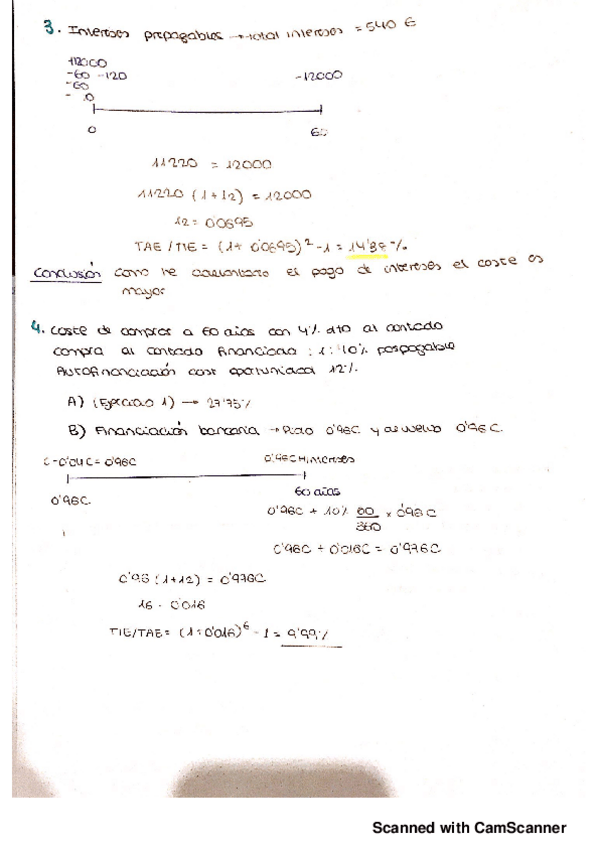 3. Intereses prepagables → total intereses = 540 €
12000
-60 -120 -12000
-60
- 0
0 60
11220 = 12000
11220 (1 + i2) = 12000
i2 = 0'0695
TAE / TIE = (1+ 0'0695)² - 1 = 14'38 %
Conclusión como he adelantado el pago de intereses el coste es
mayor
4. Coste de compras a 60 días con 4% dto al contado
compra al contado financiado : i : 10% pospagable
Autofinanciación cost oportunidad 12%.
A) (Ejercicio 1) → 27'75%
B) Financiación bancaria → Pido 0'96C y devuelvo 0'96C.
C - 0'04C = 0'96C 0'96C + intereses
0'96C. 60 días
0'96C + 10% 60/360 × 0'96C
0'96C + 0'016C = 0'976C
0'96 (1+i2) = 0'976C
i6 = 0'016
TIE/TAE = (1+0'016)⁶ - 1 = 9'99%
Scanned with CamScanner